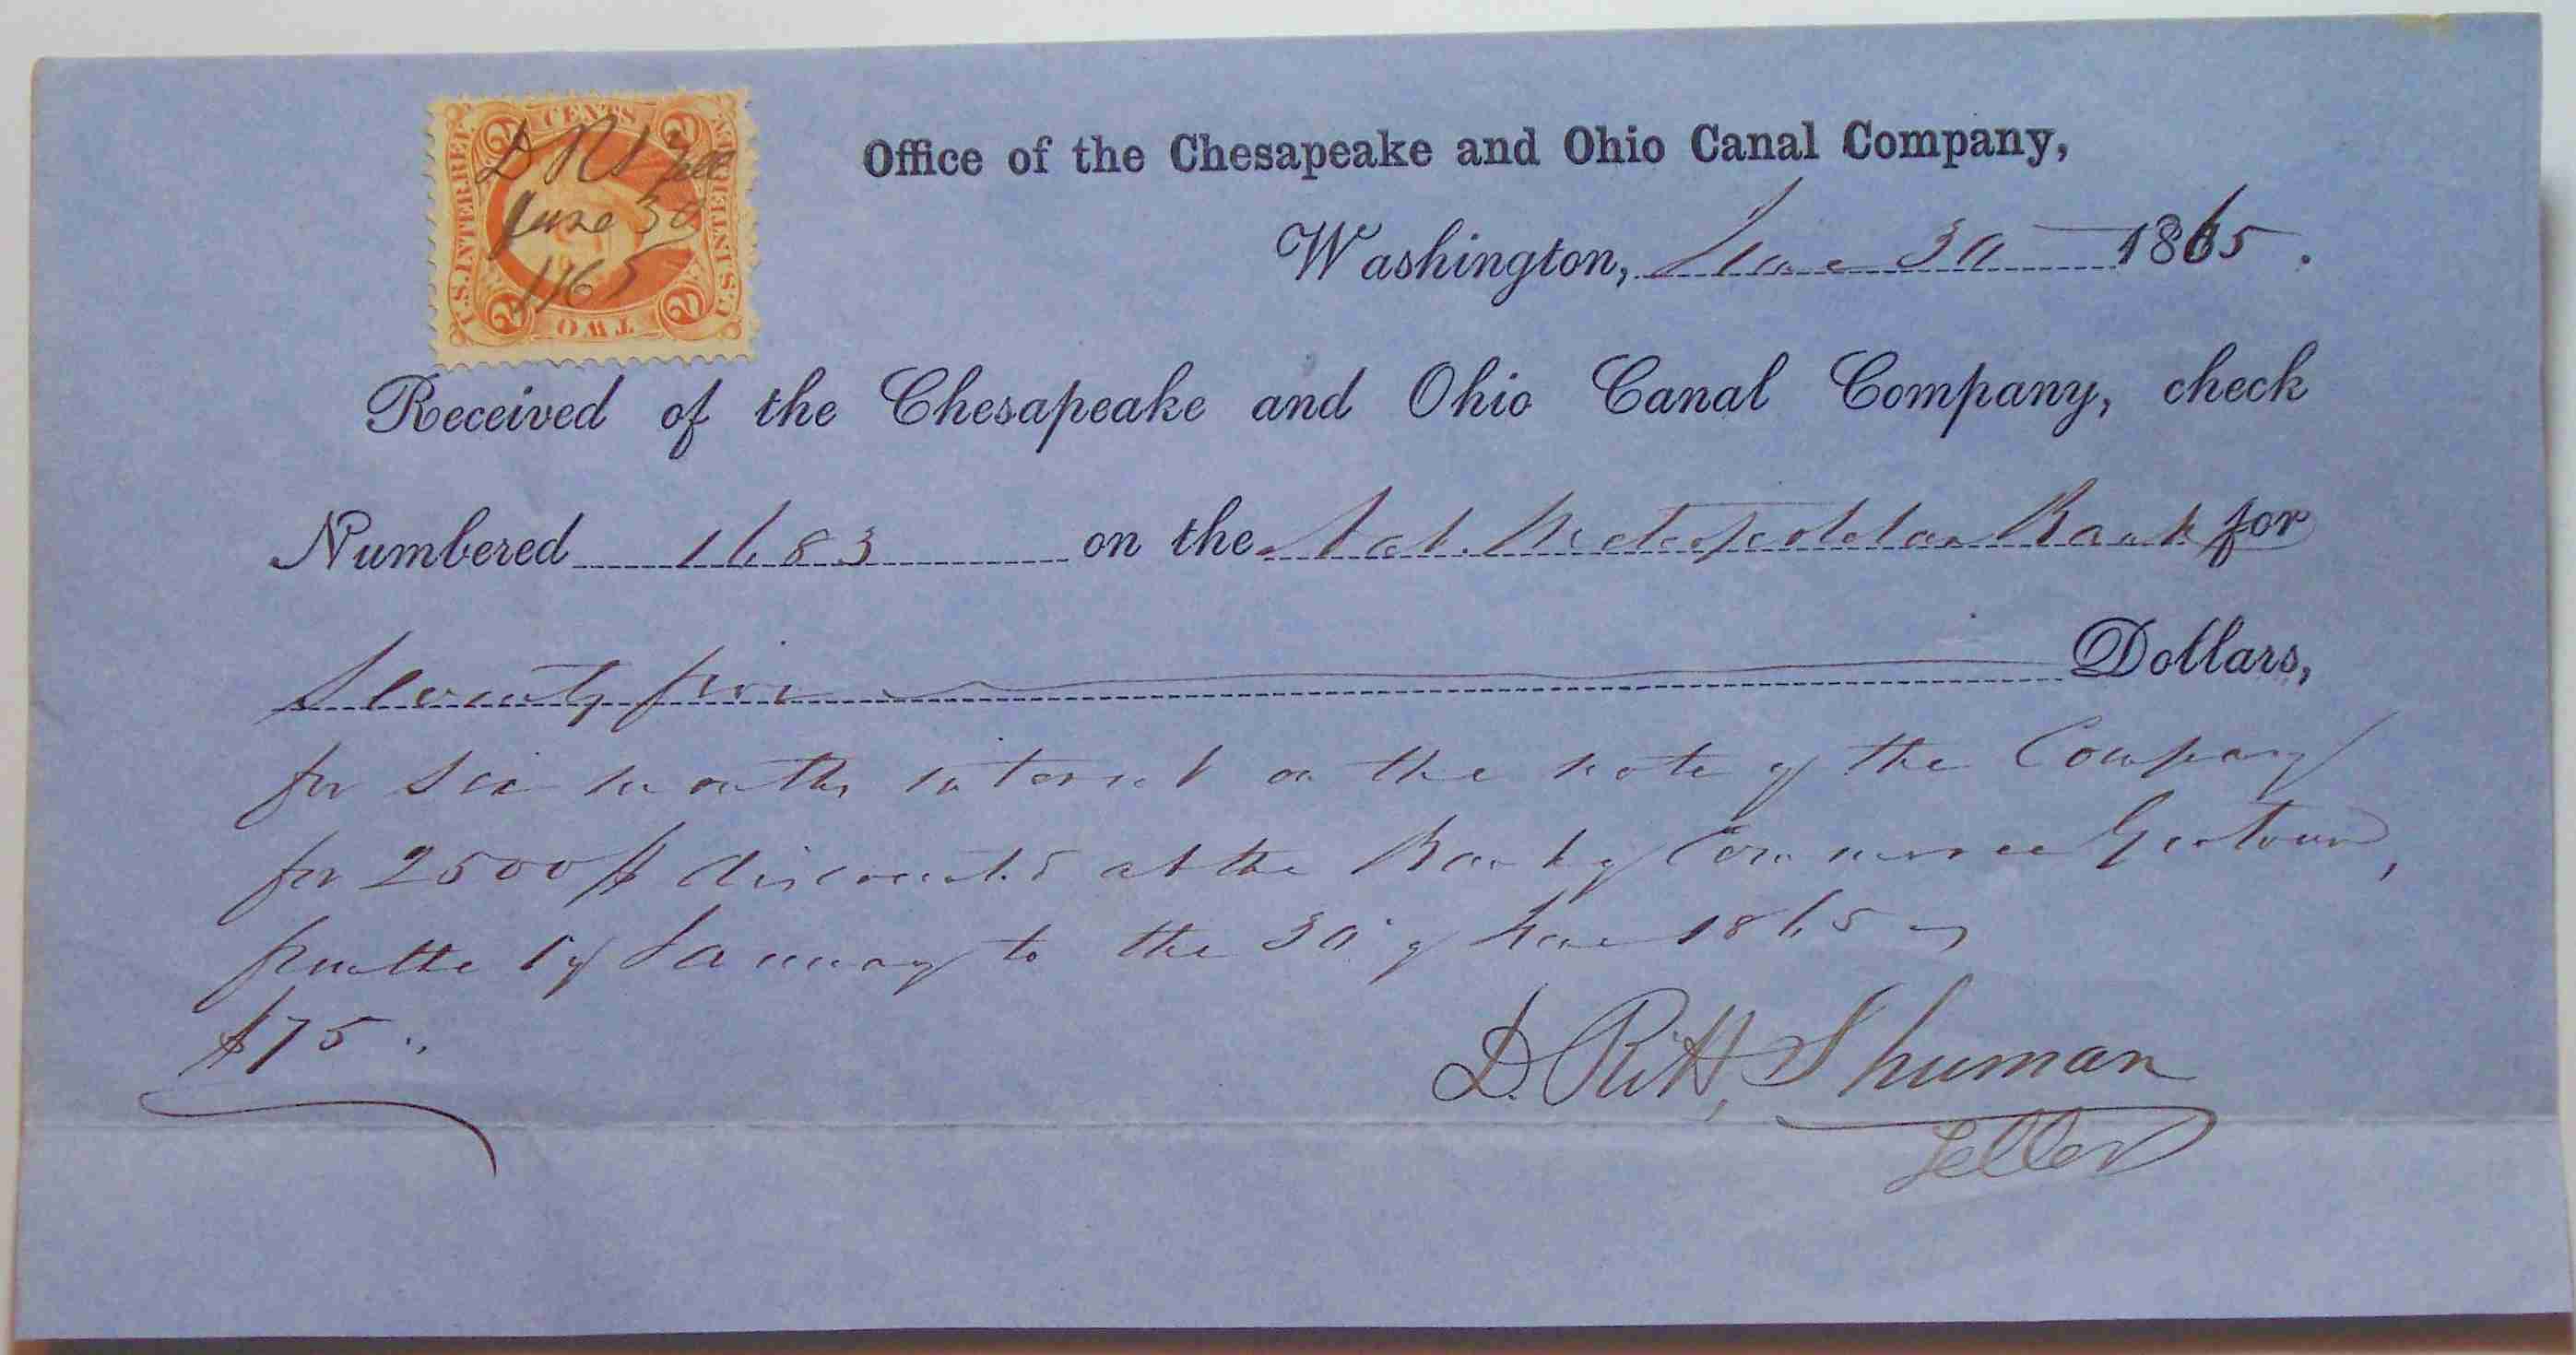 CENTS
2 2
U.S. INTER. REV. U.S. INTER. REV.
D R S Tell
June 30
1865
2 2
TWO
Office of the Chesapeake and Ohio Canal Company,
Washington, June 30 1865.
Received of the Chesapeake and Ohio Canal Company, check
Numbered 1683 on the Nat. Metropolitan Bank for
Seventy five Dollars,
for six months interest on the note of the Company
for 2500 $ discounted at the Bank of Commerce Geotown,
from the 1 of January to the 30 of June 1865
$75..
D. Ritt, Shuman
Teller